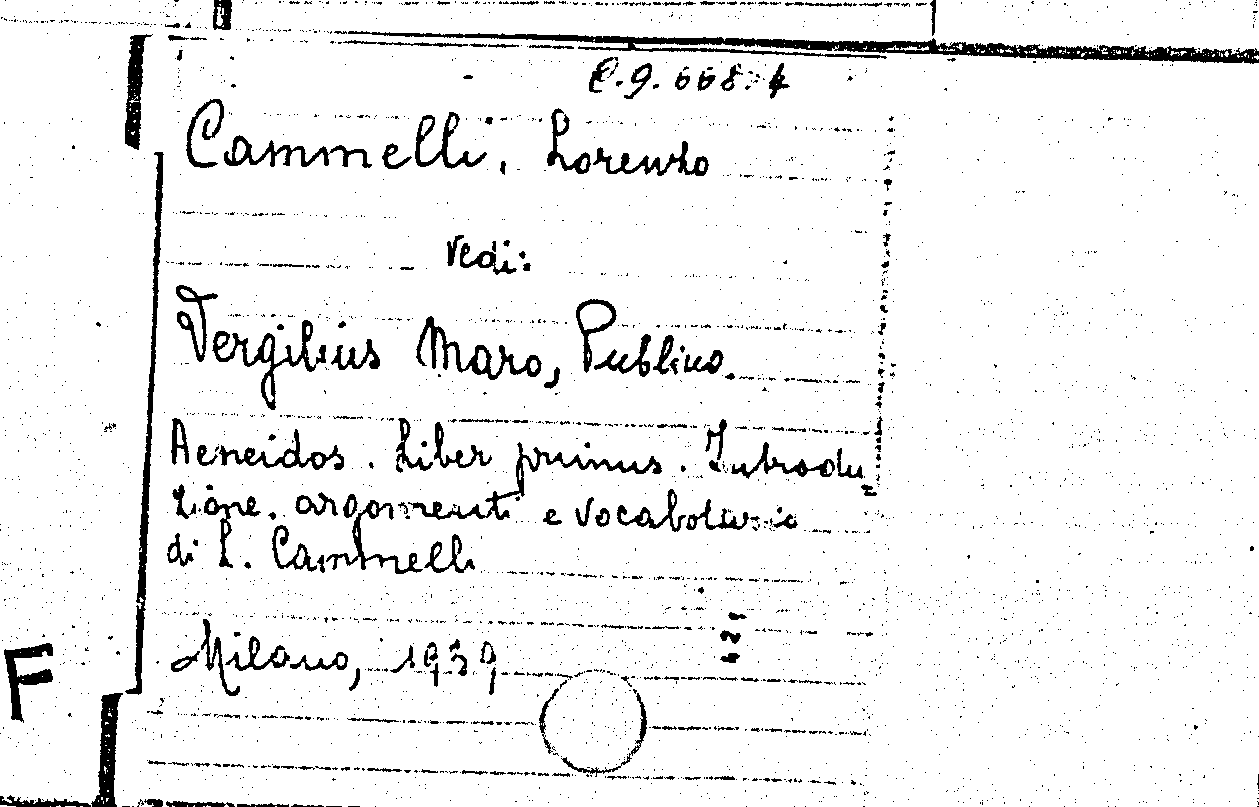 C.9.668.4
Cammelli, Lorenzo
Vedi:
Vergilius Maro, Publius.
Aeneidos. Liber primus. Introdu-
zione, argomenti e vocabolario
di L. Cammelli
Milano, 1939
F